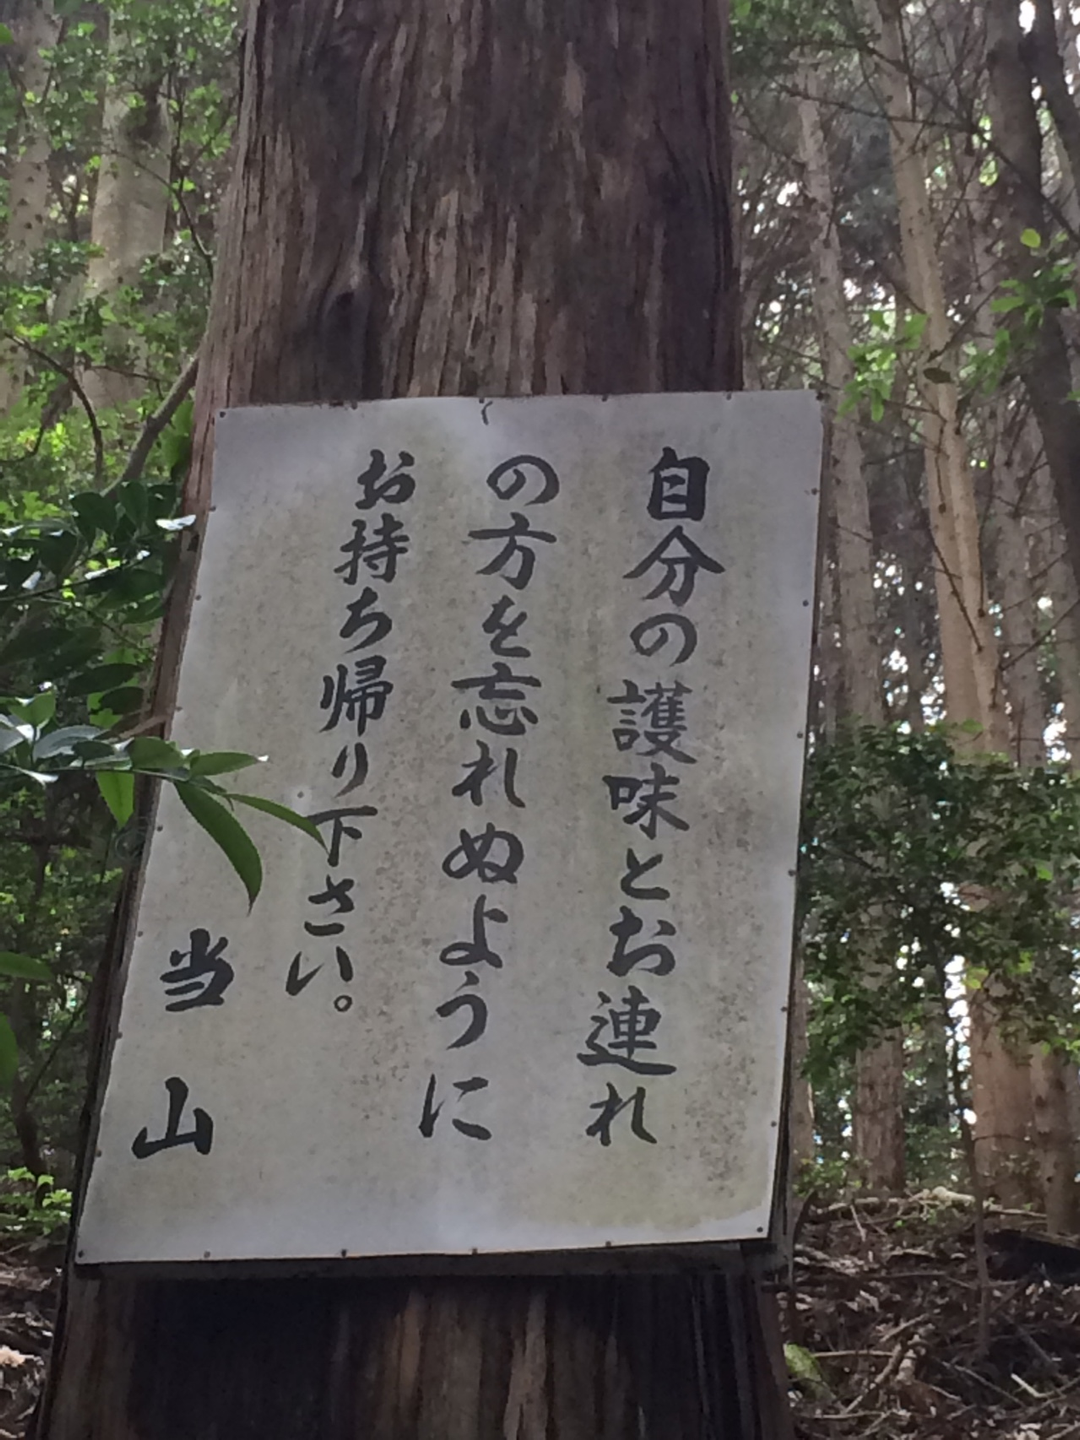 自分の護味とお連れ
の方を忘れぬように
お持ち帰り下さい。
当山